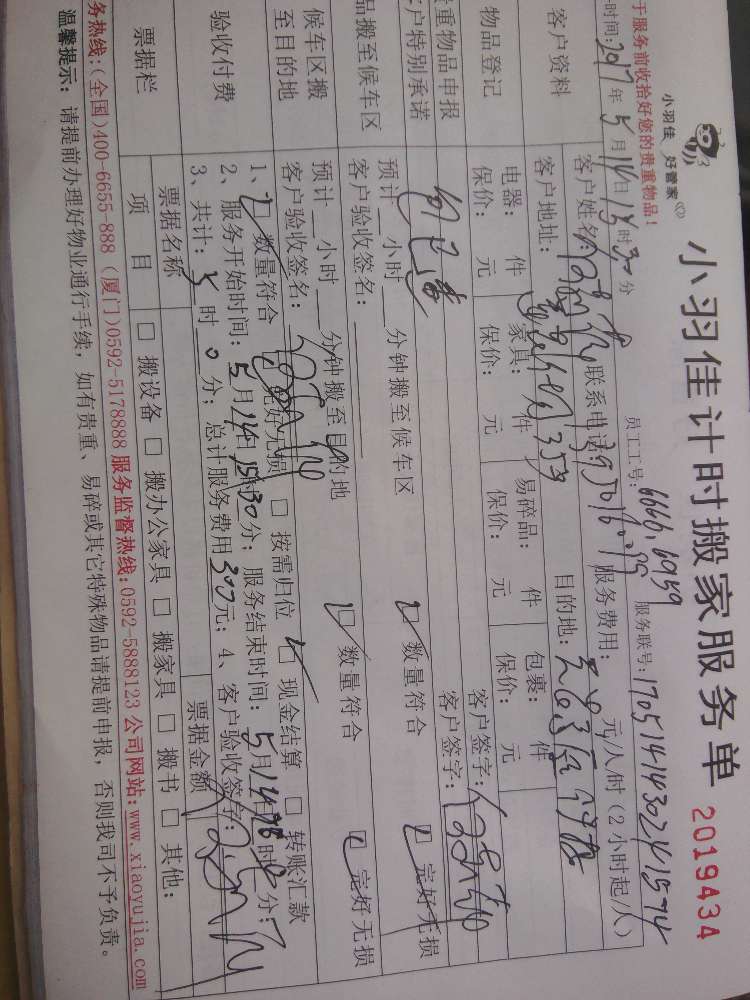 小羽佳 好管家
小羽佳计时搬家服务单 2019434
于服务前收拾好您的贵重物品！
员工工号：6666.6959 服务联号：17051414302241574
时间：2017年5月14日15时30分
客户资料 客户姓名： 联系电话： 服务费用： 元/人/时（2小时起/人）
客户地址： 目的地：
物品登记 电器： 件 家具： 件 易碎品： 件 包裹： 件
保价： 元 保价： 元 保价： 元 保价： 元
重物品申报 客户签字：
户特别承诺 客户签字：
品搬至候车区 预计 小时 分钟搬至候车区 数量符合 完好无损
客户验收签名：
候车区搬至目的地 预计 小时 分钟搬至目的地 数量符合 完好无损
客户验收签名：
验收付费 1、 数量符合 完好无损 □ 按需归位 现金结算 □ 转账汇款
2、服务开始时间：5月14日15时30分；服务结束时间：5月14日 时 分；
3、共计： 时0分；总计服务费用300元；4、客户验收签字：
票据栏 票据名称 票据金额
项目 □ 搬设备 □ 搬办公家具 □ 搬家具 □ 搬书 □ 其他：
务热线：(全国)400-6655 888 (厦门)0592-5178888 服务监督热线：0592-5888123 公司网站：www.xiaoyujia.com
温馨提示：请提前办理好物业通行手续，如有贵重、易碎或其它特殊物品请提前申报，否则我司不予负责。